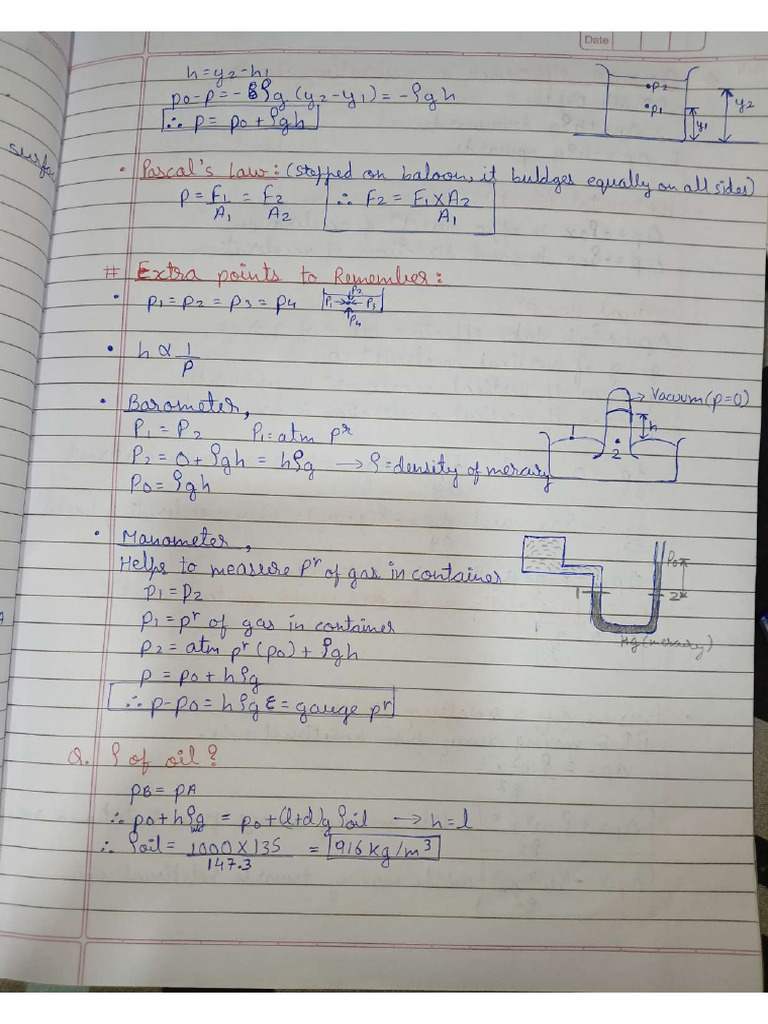 Date
h = y2 - h1
p0 - p = -ρg (y2 - y1) = -ρgh
∴ p = p0 + ρgh
p2
p1
y2
y1
• Pascal's Law: (stepped on baloon, it buldges equally on all sides)
P = F1/A1 = F2/A2 ∴ F2 = F1 × A2/A1
# Extra points to Remember:
• P1 = P2 = P3 = P4
P2
P1 P3
P4
• h ∝ 1/P
• Barometer,
P1 = P2 P1 = atm pr
P2 = 0 + ρgh = hρg → ρ = density of mercury
P0 = ρgh
→ Vacuum (p=0)
h
1
2
• Manometer,
Helps to measure Pr of gas in container
P1 = P2
P1 = pr of gas in container
P2 = atm pr (p0) + ρgh
p = p0 + hρg
∴ p - p0 = hρg = gauge pr
P0
1
2
Hg (mercury)
Q. ρ of oil?
PB = PA
∴ p0 + hρwg = p0 + (l+d)g ρoil → h = l
∴ ρoil = 1000 × 135/147.3 = 916 kg/m³